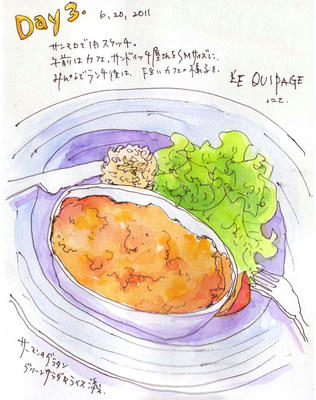 Day 3.
6, 20, 2011
サンマロで1日スケッチ。
午前はカフェ、サンドイッチ屋さんをSMサイズに。
みんなでランチ後は、F8にカフェの様子を。
L'EQUIPAGE
にて。
サーモンのグラタン
グリーンサラダ&ライス添え